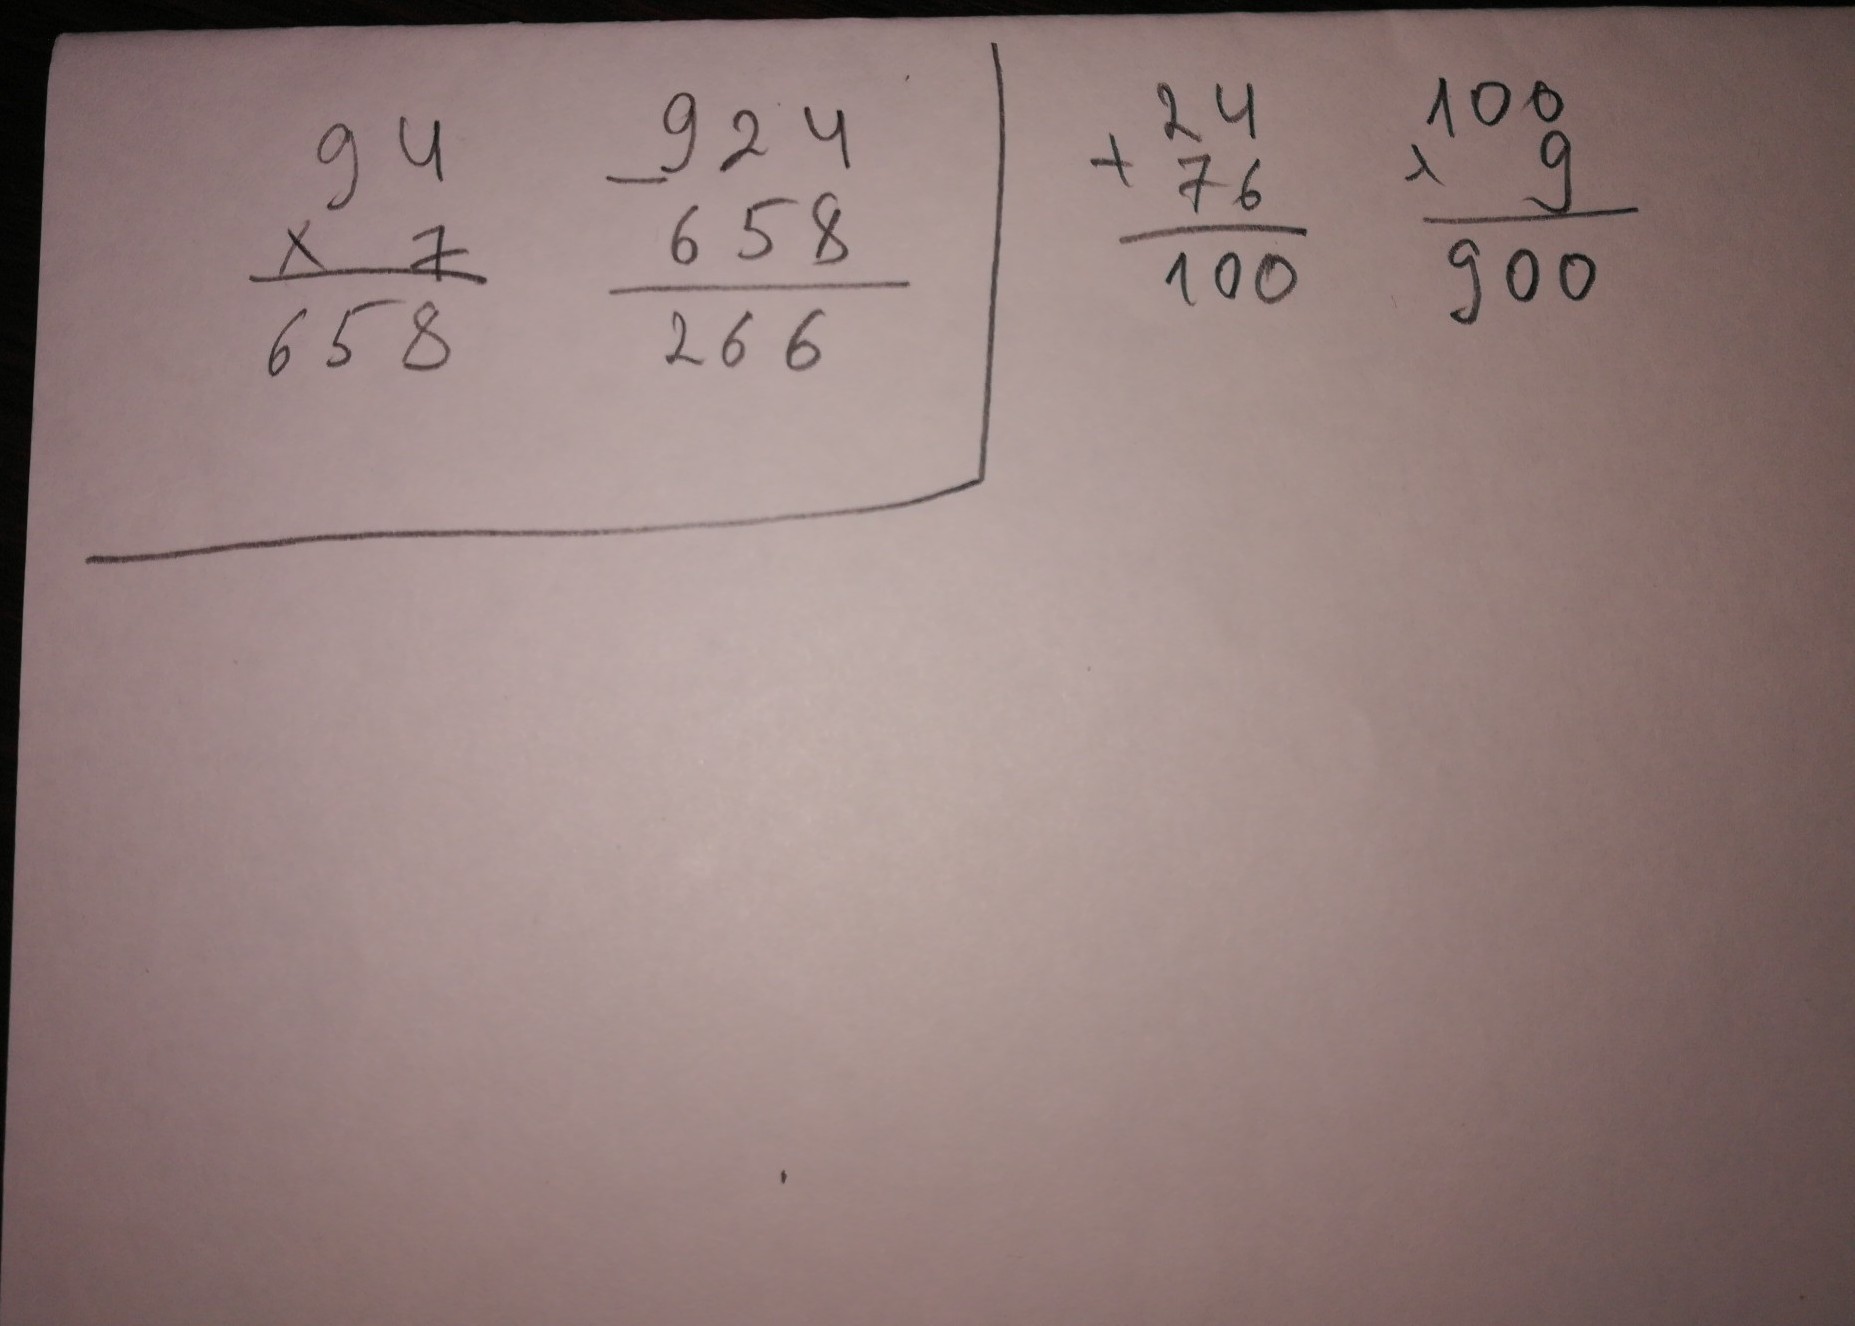 94
x 7
658
_924
658
266
24
+ 76
100
100
x 9
900